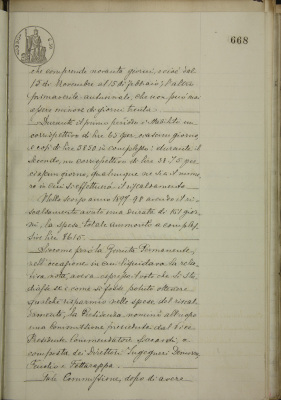 668
che comprende novanta giorni, cioè dal
15 di Novembre al 15 di Febbraio; l'altro
puramente eventuale, che non può mai
essere minore di giorni trenta.
Durante il primo periodo è stabilito un
corrispettivo di lire 65 per ciascun giorno,
e così di lire 5850 in complesso; durante il
secondo, un corrispettivo di lire 38.75 per
ciascun giorno, qualunque ne sia il nume-
ro in cui si effettuerà il riscaldamento.
Nello scorso anno 1897-98 avendo il ri-
scaldamento avuto una durata di 157 gior-
ni, la spesa totale ammontò a comples-
sive lire
Siccome però la Giunta Permanente,
nell'occasione in cui liquidava la rela-
tiva nota, aveva espresso voto che si stu-
diasse se e come si fosse potuto ottenere
qualche risparmio nelle spese del riscal-
damento, la Presidenza nominò all'uopo
una Commissione, presieduta dal Vice
Presidente Commendatore e
composta dei Direttori Ingegneri
e
Tale Commissione, dopo di avere